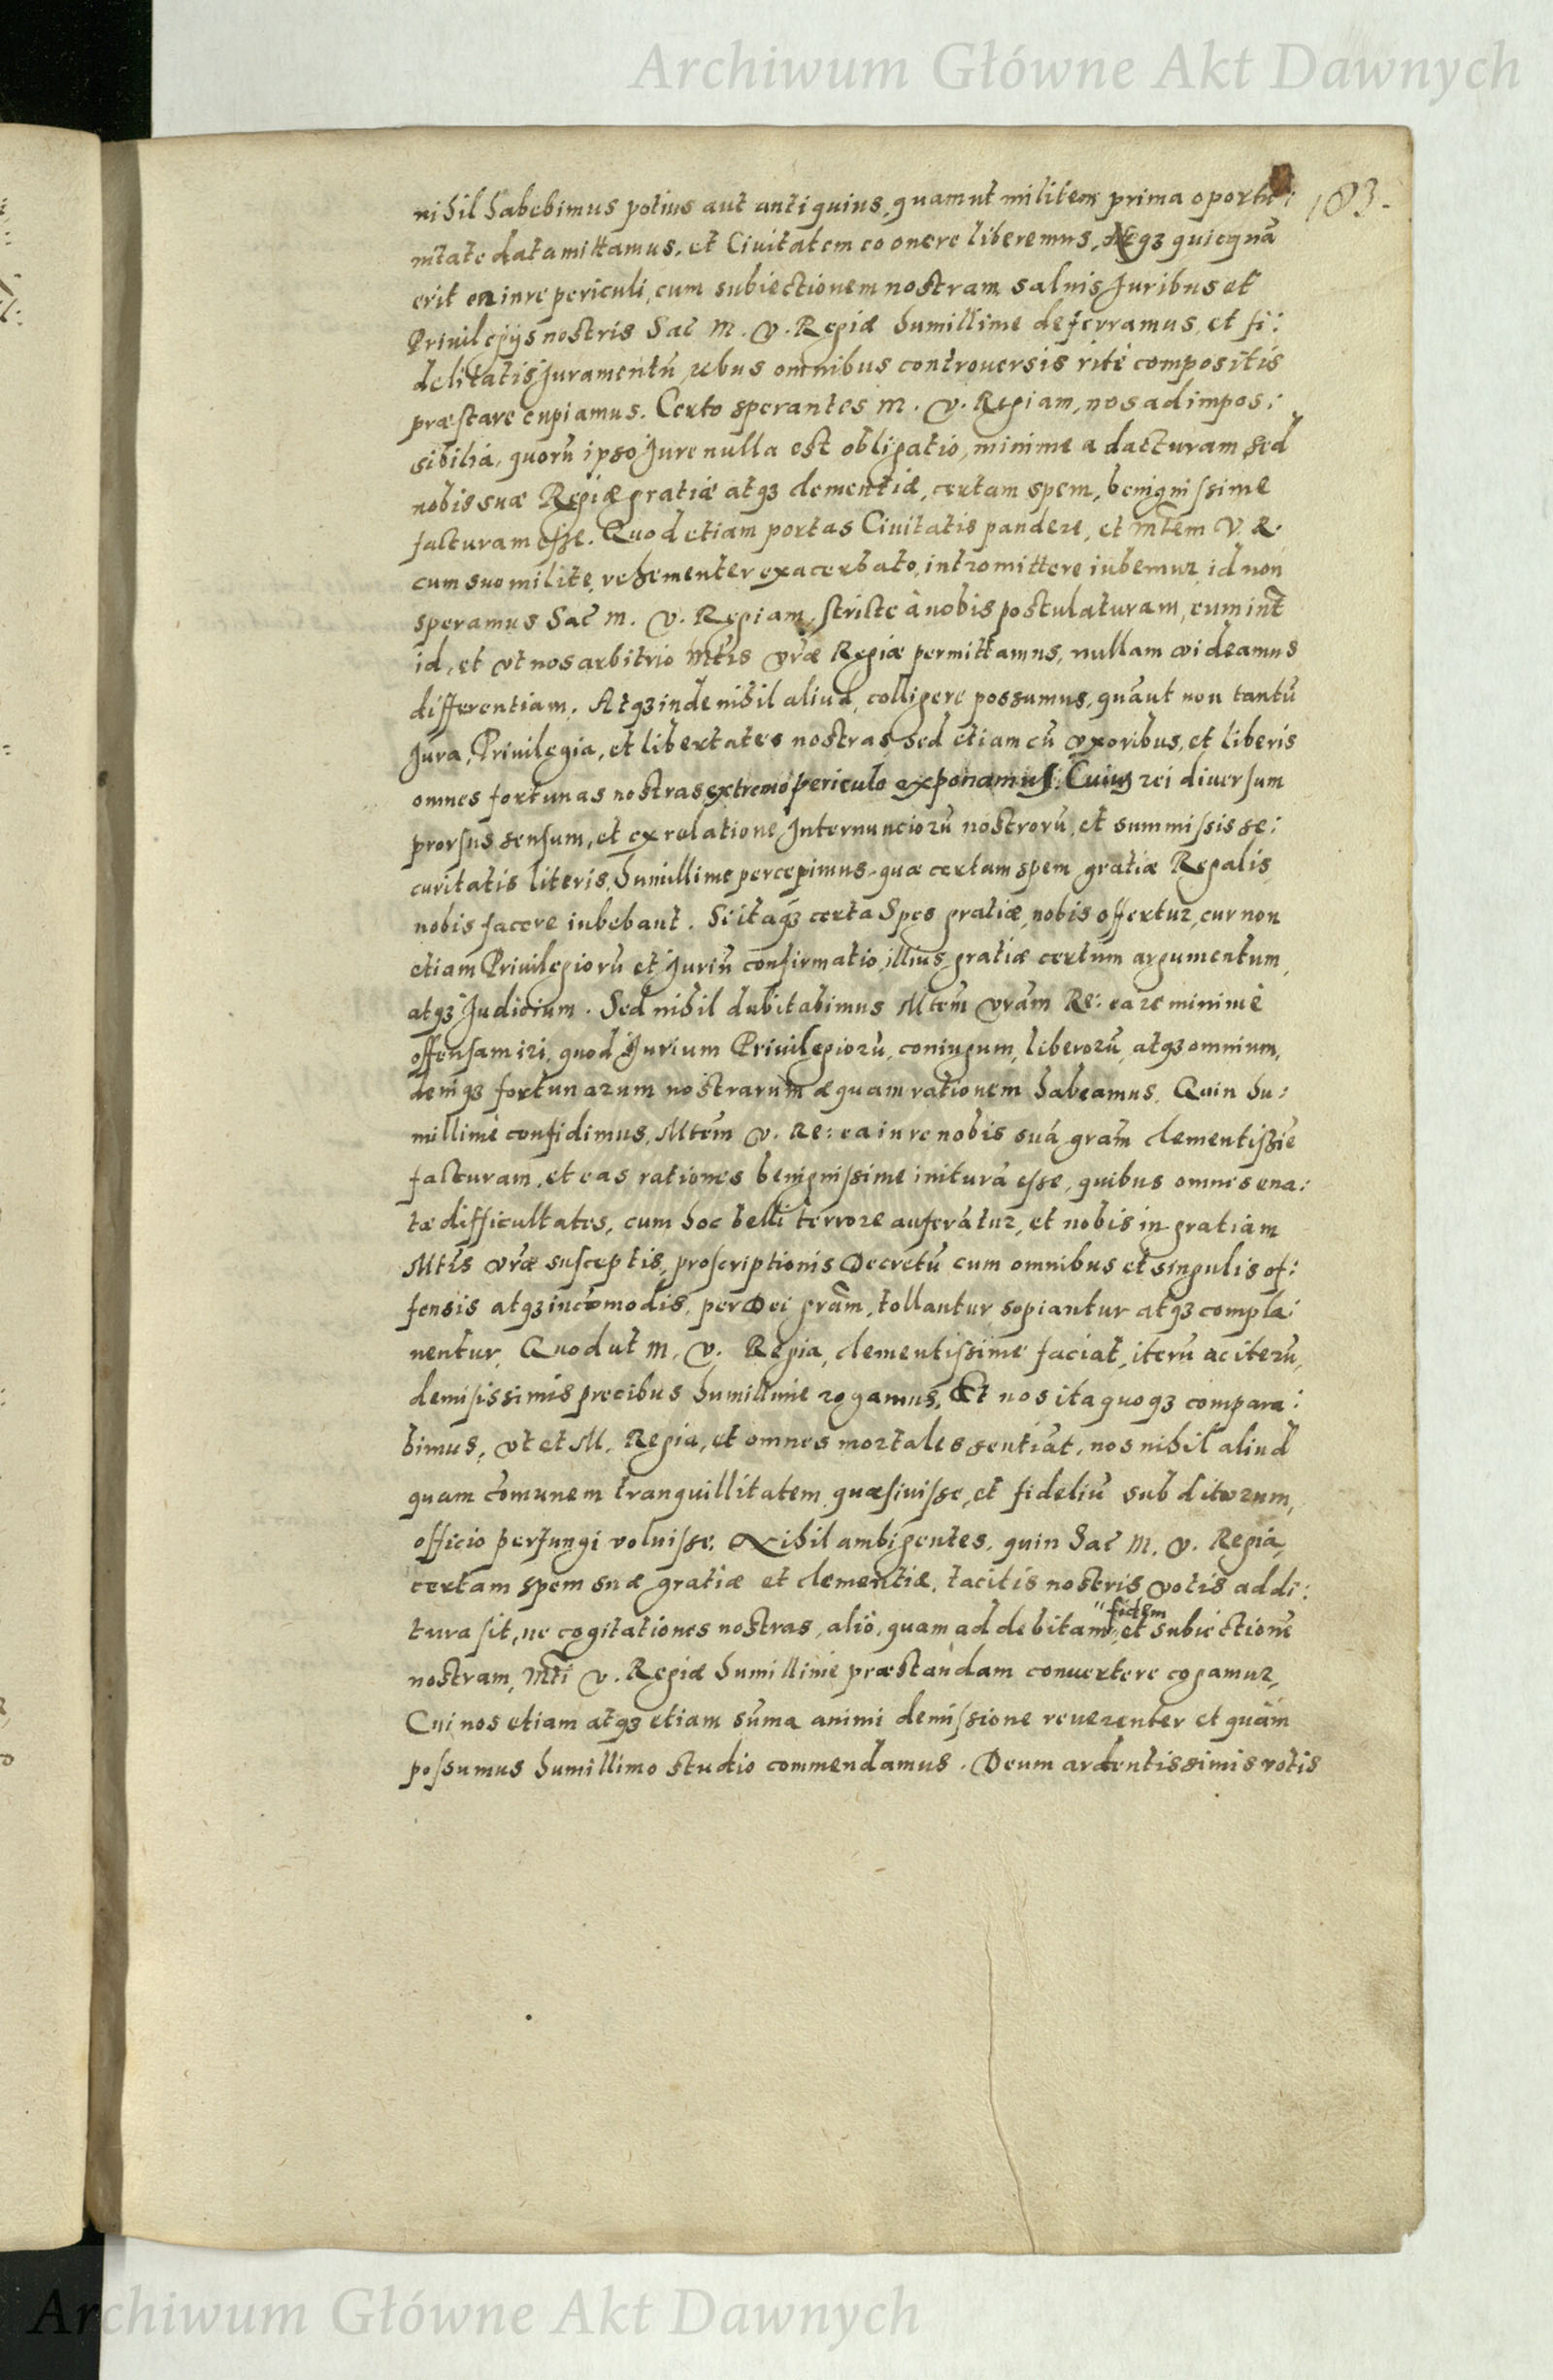 Archiwum Główne Akt Dawnych
183.
nihil habebimus potius aut antiquius, quam ut militem prima oportu:
nitate data mittamus, et Civitatem eo onere liberemus, Neqꝫ quicquā
erit ea in re periculi, cum subiectionem nostram salvis Juribus et
Privilegijs nostris Sac̄ M. V. Regiæ humillime deferramus, et fi:
delitatis Juramentū, rebus omnibus controversis ritè compositis
præstare cupiamus. Certo sperantes M. V. Regiam, nos ad impos:
sibilia, quorū ipso Jure nulla est obligatio, minime adacturam sed
nobis suæ Regiæ gratiæ atqꝫ clementiæ, certam spem, benignissime
facturam esse. Quod etiam portas Civitatis pandere, et Mtēm V. R.
cum suo milite, vehementer exacerbato, intromittere iubemur, id non
speramus Sac̄ M. V. Regiam, stricte à nobis postulaturam, cum int̄
id, et vt nos arbitrio Mtīs vr̄æ Regiæ permittamus, nullam videamus
differentiam. Atqꝫ inde nihil aliud, colligere possumus, quā ut non tantū
Jura, Privilegia, et libertates nostras, sed etiam cū vxoribus, et liberis
omnes fortunas nostras extremo periculo exponamus. Cuius rei diversum
prorsus sensum, et ex relatione Internunciorū nostrorū, et summissis se:
curitatis literis, humillime percepimus, quæ certam spem gratiæ Regalis
nobis facere iubebant. Si itaqꝫ certa Spes gratiæ, nobis offertur, cur non
etiam Privilegiorū et Juriū confirmatio, illius gratiæ certum argumentum,
atqꝫ Judicium. Sed nihil dubitabimus Mtēm vrām Re: ea re minimè
offensam iri, quod Jurium Privilegiorū, coniugum, liberorū, atqꝫ omnium,
deniqꝫ fortunarum nostrarum æquam rationem habeamus. Quin hu:
millimè confidimus, Mtēm V. Re: ea in re nobis suā grām clementissīe
facturam, et eas rationes benignissime initurā esse, quibus omnes ena:
tæ difficultates, cum hoc belli terrore auferātur, et nobis in gratiam
Mtīs vr̄æ susceptis, proscriptionis Decretū cum omnibus et singulis of:
fensis atqꝫ incōmodis, per Dei grām, tollantur sopiantur atqꝫ compla:
nentur. Quod ut M. V. Regia, clementissime faciat, iterū ac iterū,
demisissimis precibus humillime rogamus. Et nos ita quoqꝫ compara:
bimus, vt et M. Regia, et omnes mortales sentiāt, nos nihil aliud
quam cōmunem tranquillitatem quæsivisse, et fideliū subditorum,
officio perfungi voluisse. Nihil ambigentes, quin Sac̄ M. V. Regia,
certam spem suæ gratiæ et clementiæ, tacitis nostris votis addi:
tura sit, ne cogitationes nostras, aliò, quam ad debitam fidem et subiectionē
nostram, Mtī V. Regiæ humillime præstandam convertere cogamur,
Cui nos etiam atqꝫ etiam sūma animi demissione reverenter et quām
possumus humillimo studio commendamus. Deum ardentissimis votis
Archiwum Główne Akt Dawnych